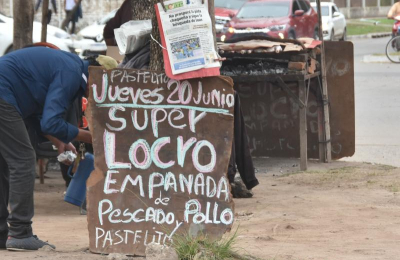 PASTELIT
JUEVES 20 JUNIO
SUPER
LOCRO
EMPANADA
de
PESCADO, POLLO
PASTELITO